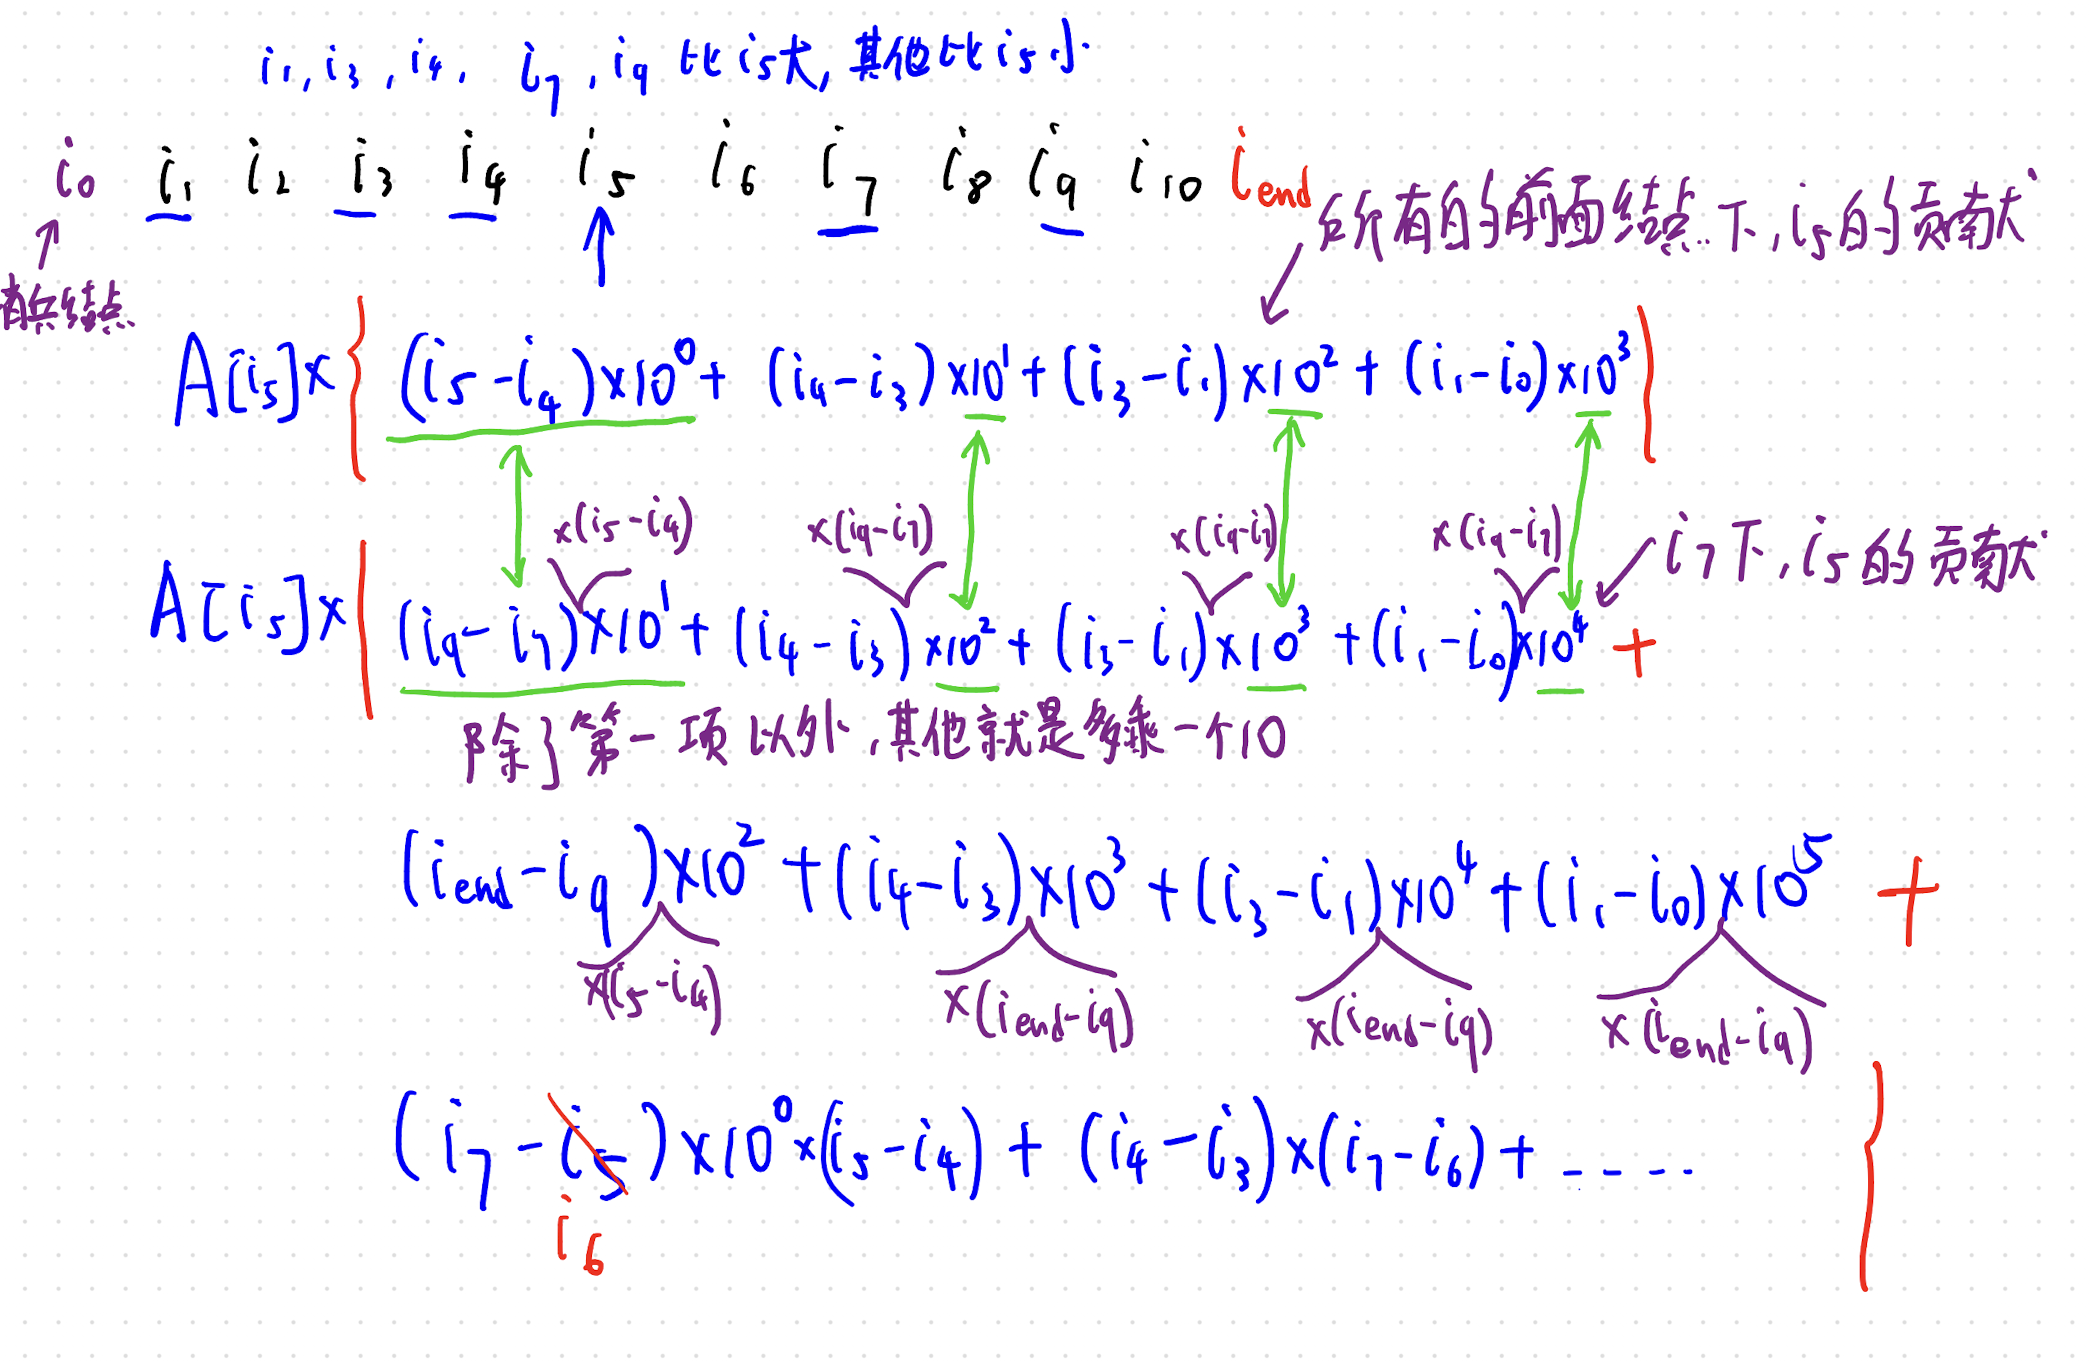 i₁, i₃, i₄, i₇, i₉ 比 i₅大, 其他比 i₅小
i₀ i₁ i₂ i₃ i₄ i₅ i₆ i₇ i₈ i₉ i₁₀ i_end
在所有的前面结点下, i₅的贡献
哨兵结点
A[i₅]× { (i₅-i₄)×10⁰+ (i₄-i₃)×10¹+(i₃-i₁)×10²+(i₁-i₀)×10³ }
×(i₅-i₄) ×(i₉-i₇) ×(i₉-i₇) ×(i₉-i₇)
i₇下, i₅的贡献
A[i₅]× (i₉-i₇)×10¹+(i₄-i₃)×10²+(i₃-i₁)×10³+(i₁-i₀)×10⁴ +
除了第一项以外, 其他就是多乘一个10
(i_end-i₉)×10²+(i₄-i₃)×10³+(i₃-i₁)×10⁴+(i₁-i₀)×10⁵ +
×(i₅-i₄) ×(i_end-i₉) ×(i_end-i₉) ×(i_end-i₉)
(i₇-i₅)×10⁰×(i₅-i₄)+(i₄-i₃)×(i₇-i₆)+ ----- }
i₆